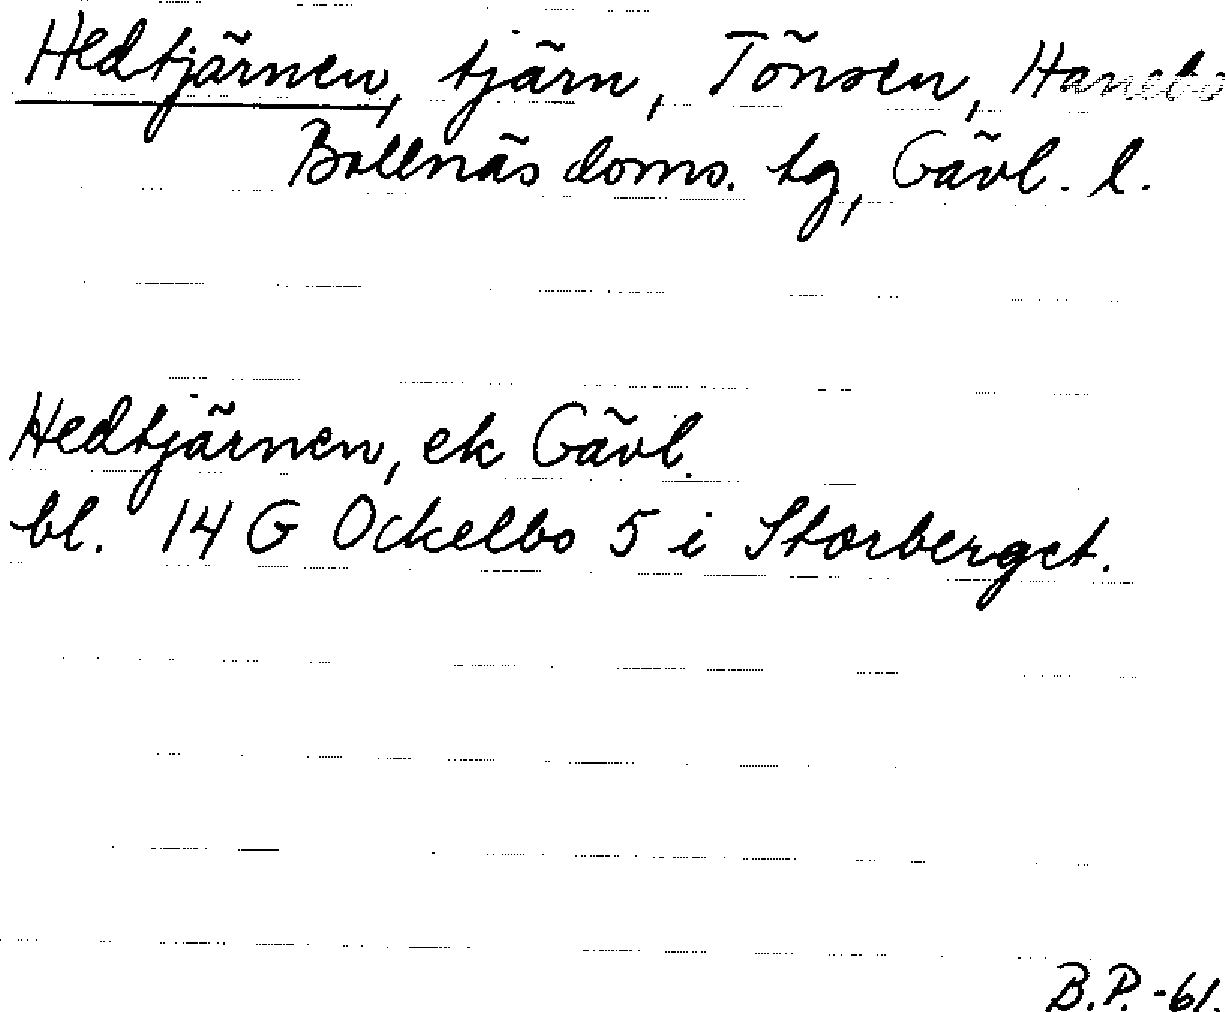 Hedtjärnen, tjärn, Tönsen, Hanebo
Bollnäs doms. tg, Gävl. l.
Hedtjärnen, ek Gävl.
bl. 14 G Ockelbo 5 i Storberget.
B.P. -61.